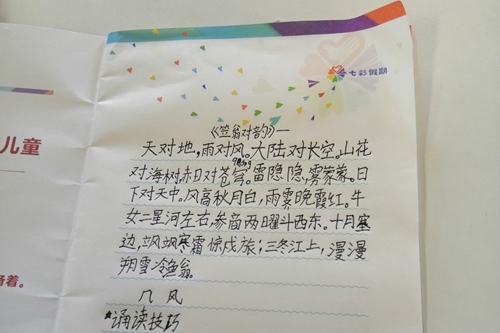 七彩假期
儿童
《笠翁对韵》一
天对地,雨对风。大陆对长空。山花
对海树,赤日对苍穹。雷隐隐,雾蒙蒙。日
下对天中。风高秋月白,雨霁晚霞红。牛
女二星河左右,参商两曜斗西东。十月塞
边,飒飒寒霜惊戍旅;三冬江上,漫漫
朔雪冷鱼翁。
着。
几 风
*诵读技巧